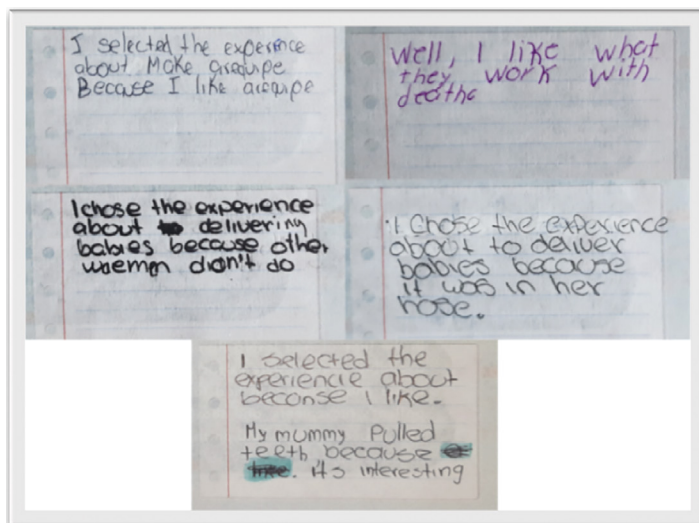 I selected the experence
about Make arequipe
Because I like arequipe
Well, I like what
they work with
deaths
I chose the experience
about delivering
babies because other
women didn't do
I chose the experience
about to deliver
babies because
it was in her
hose.
I selected the
experiencie about
beconse I like.
My mummy Pulled
teeth because
. it's interesting